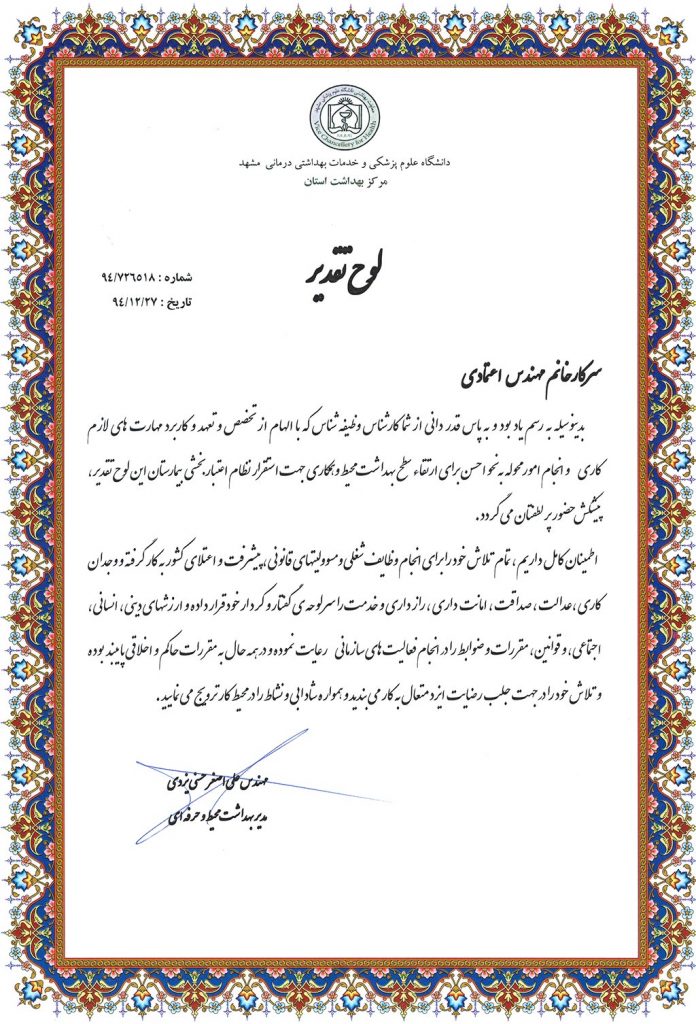 Vice Chancellery for Health
دانشگاه علوم پزشکی و خدمات بهداشتی درمانی مشهد
مرکز بهداشت استان
لوح تقدیر
شماره : ۹٤/۷۲٦٥۱۸
تاریخ : ۹٤/۱۲/۲۷
سرکار خانم مهندس اعتمادی
بدینوسیله به رسم یاد بود و به پاس قدر دانی از شما کارشناس وظیفه شناس که با الهام از تخصص و تعهد و کاربرد مهارت های لازم
کاری و انجام امور محوله به نحو احسن برای ارتقاء سطح بهداشت محیط و همکاری جهت استقرار نظام اعتبار بخشی بیمارستان این لوح تقدیر،
پیشکش حضور پر لطفتان می گردد.
اطمینان کامل داریم، تمام تلاش خود را برای انجام وظایف شغلی و مسوولیتهای قانونی، پیشرفت و اعتلای کشور به کار گرفته و وجدان
کاری، عدالت، صداقت، امانت داری، راز داری و خدمت را سرلوحه ی گفتار و کردار خود قرار داده و ارزشهای دینی، انسانی،
اجتماعی، و قوانین، مقررات و ضوابط را در انجام فعالیت های سازمانی رعایت نموده و در همه حال به مقررات حاکم و اخلاقی پایبند بوده
و تلاش خود را در جهت جلب رضایت ایزد متعال به کار می بندید و همواره شادابی و نشاط را در محیط کار ترویج می نمایید.
مهندس علی اصغر حسنی یزدی
مدیر بهداشت محیط و حرفه ای